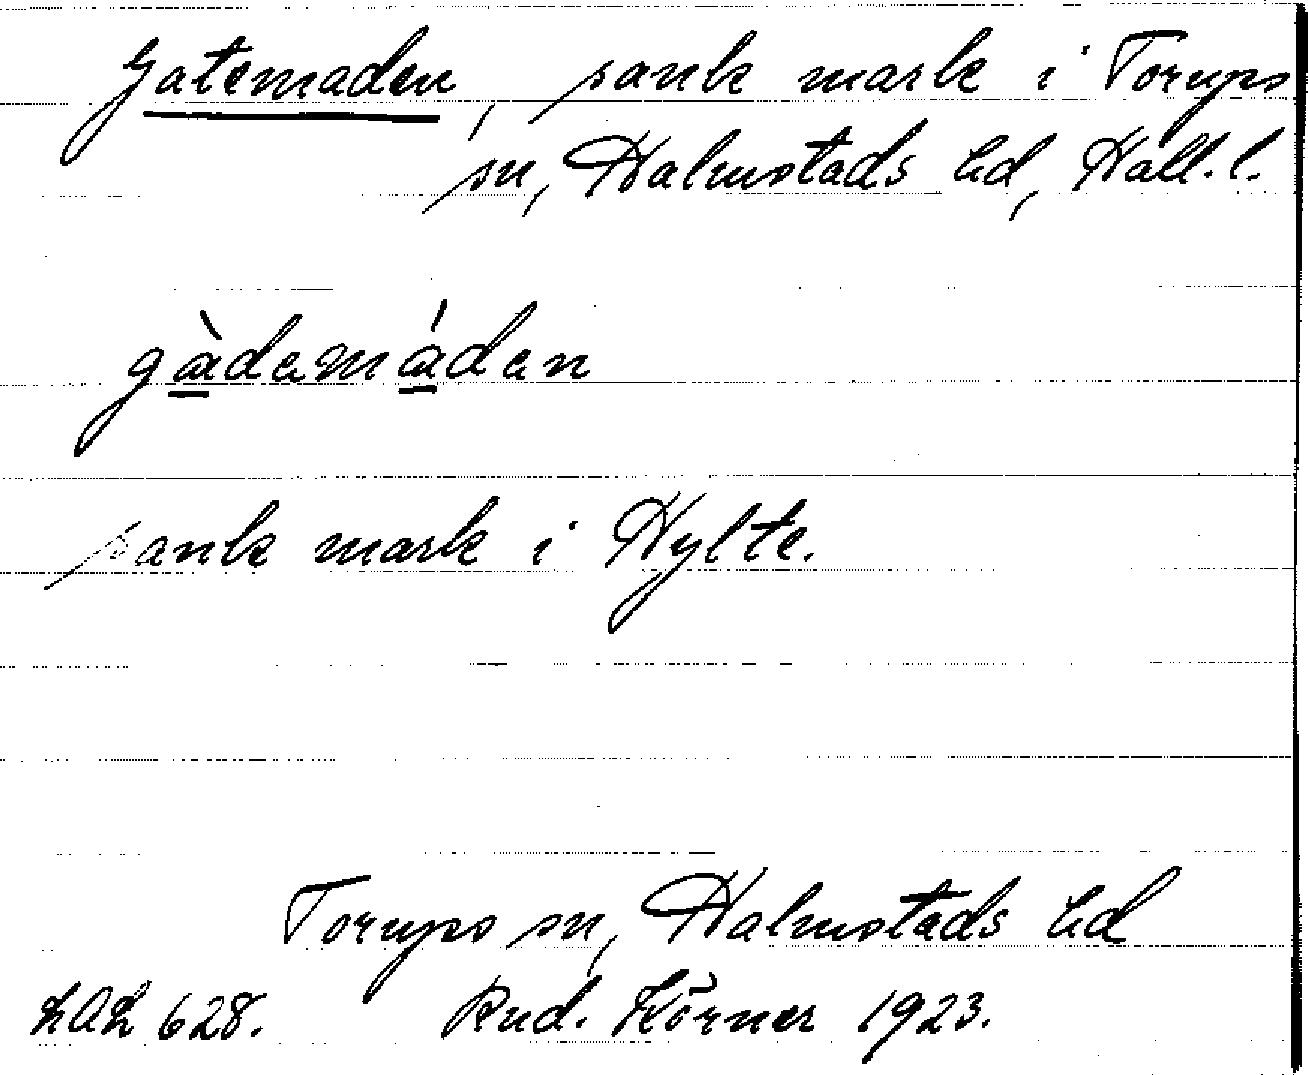 Gatemaden, sank mark i Torups
sn, Halmstads hd, Hall. l.
gàdemáden
sank mark i Hylte.
Torups sn, Halmstads hd
LAL 628. Rud. Körner 1923.